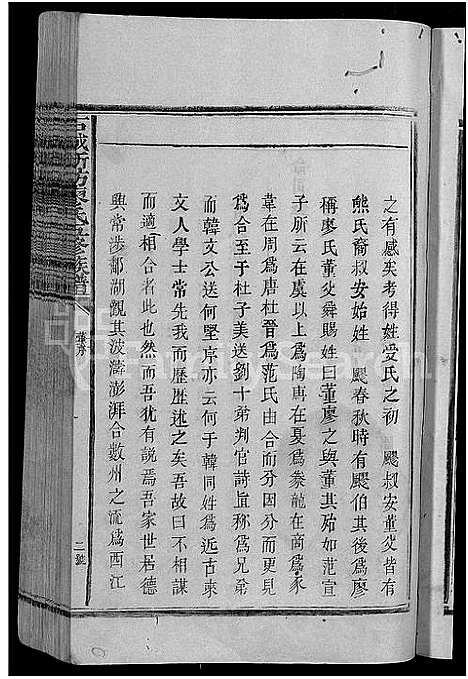 之有感矣考得姓受氏之初 飂叔安董父皆有
熊氏裔叔安始姓 飂春秋時有飂伯其後爲廖
稱廖氏董父舜賜姓曰董廖之與董其殆如范宣
子所云在虞以上爲陶唐在夏爲豢龍在商爲豕
韋在周爲唐杜晉爲范氏由合而分因分而更見
爲合至于杜子美送劉十弟判官詩直称爲兄弟
而韓文公送何堅序亦云何于韓同姓爲近古來
文人學士常先我而歷歷述之矣吾故曰不相謀
而適相合者此也然而吾犹有說焉吾家世居德
興常涉鄱湖觀其波濤澎湃合數州之流爲西江
氏五修族譜
二號